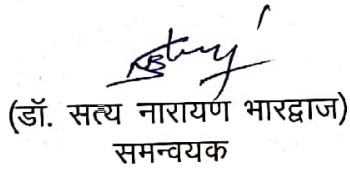 (डॉ. सत्य नारायण भारद्वाज)
समन्वयक